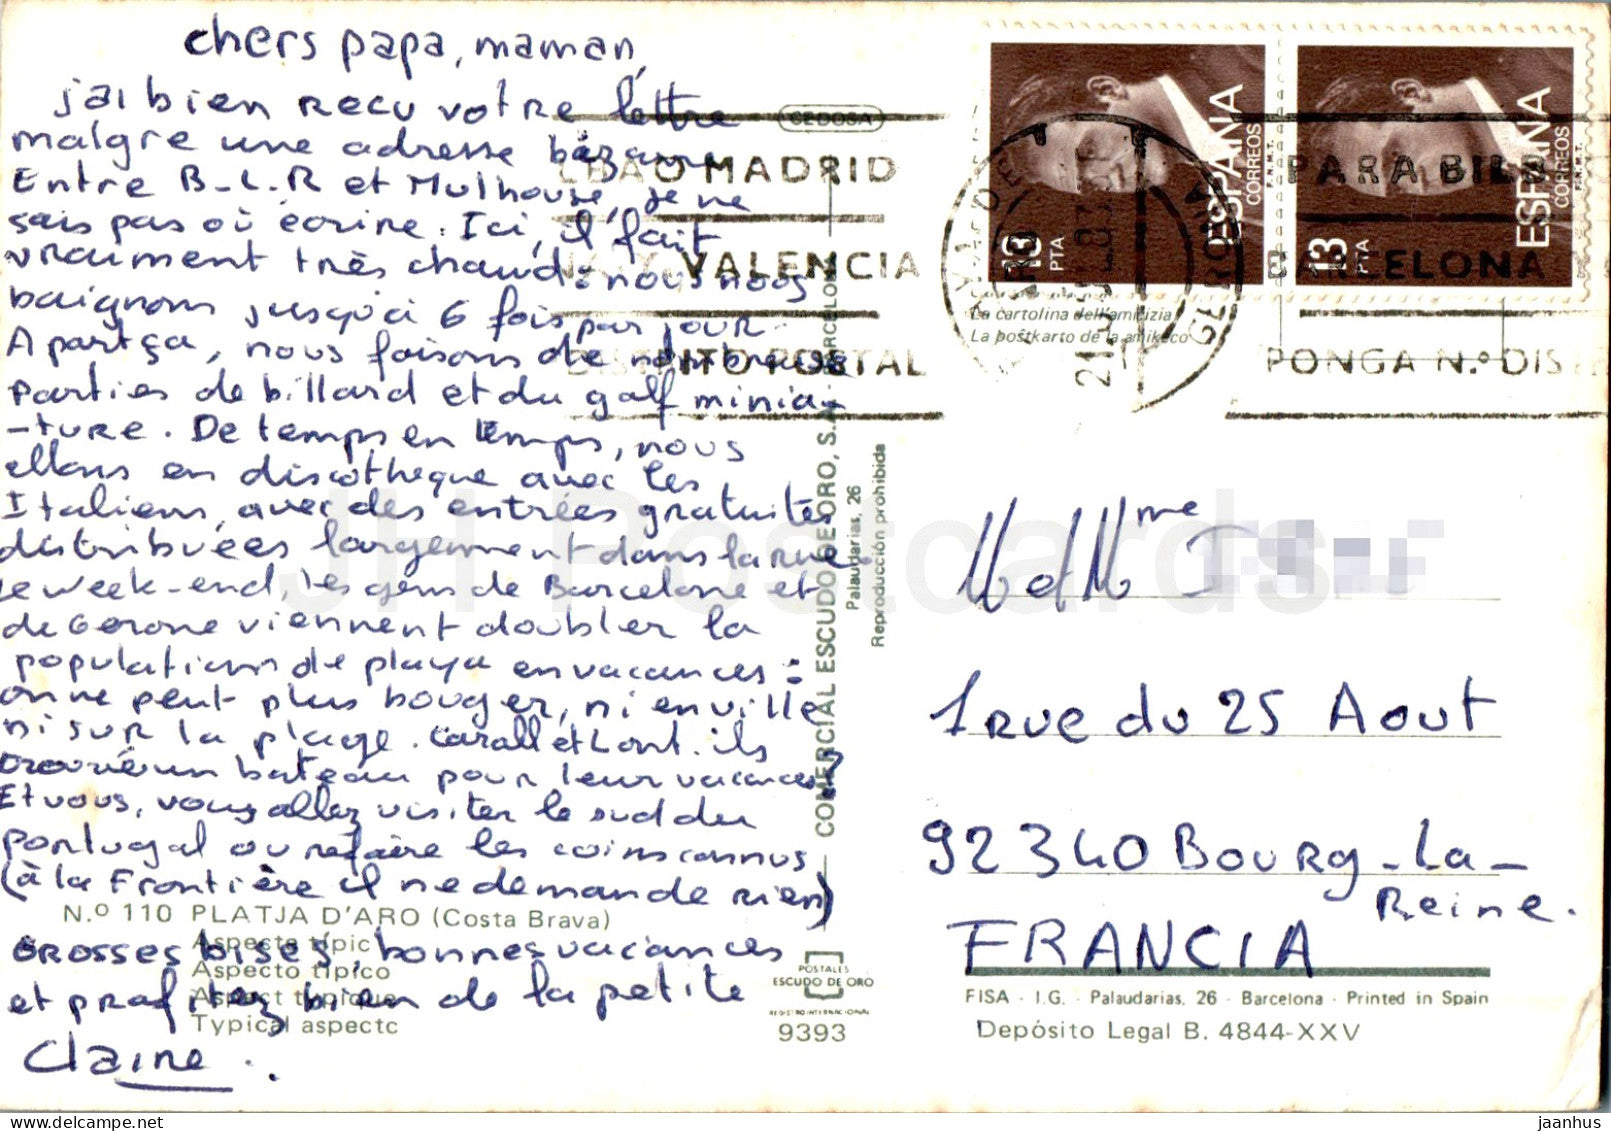 chers papa, maman,
j'ai bien recu votre lettre
malgre une adresse bizarre
Entre B-L-R et Mulhouse, je ne
sais pas où écrire. Ici, il fait
vraiment très chaud : nous nous
baignons jusqu'à 6 fois par jour.
A part ça, nous faisons de nombreuse
parties de billard et du golf minia-
-ture. De temps en temps, nous
allons en discotheque avec les
Italiens, avec des entrées gratuites
distribuées largement dans la rue.
Le week-end, les gens de Barcelone et
de Gerone viennent doubler la
population de playa en vacances :
on ne peut plus bouger, ni en ville
ni sur la plage. et ils
un bateau pour leur vacances?
Et vous, vous allez visiter le sud du
Portugal ou refaire les coins connus
(à la Frontière il ne demande rien)
Grosses bises, bonnes vacances
et profitez bien de la petite
Claire.
N.º 110 PLATJA D'ARO (Costa Brava)
Aspecte típic
Aspecto típico
Aspect typique
Typical aspectc
COMERCIAL ESCUDO DE ORO, S.A. - BARCELONA
Palaudarias, 26
Reproducción prohibida
POSTALES
ESCUDO DE ORO
REGISTRO INTERNACIONAL
9393
CEDOSA
MADRID
VALENCIA
DISTRITO POSTAL
PARA BILB
BARCELONA
PONGA N.º DIST
13 PTA
ESPAÑA
CORREOS
F.N.M.T.
13 PTA
ESPAÑA
CORREOS
F.N.M.T.
La cartolina dell'amicizia
La poŝtkarto de la amikeco
M et Mme
1 rue du 25 Aout
92340 Bourg-La-
Reine.
FRANCIA
FISA - I.G. - Palaudarias, 26 - Barcelona - Printed in Spain
Depósito Legal B. 4844-XXV
JH Postcards
jaanhus